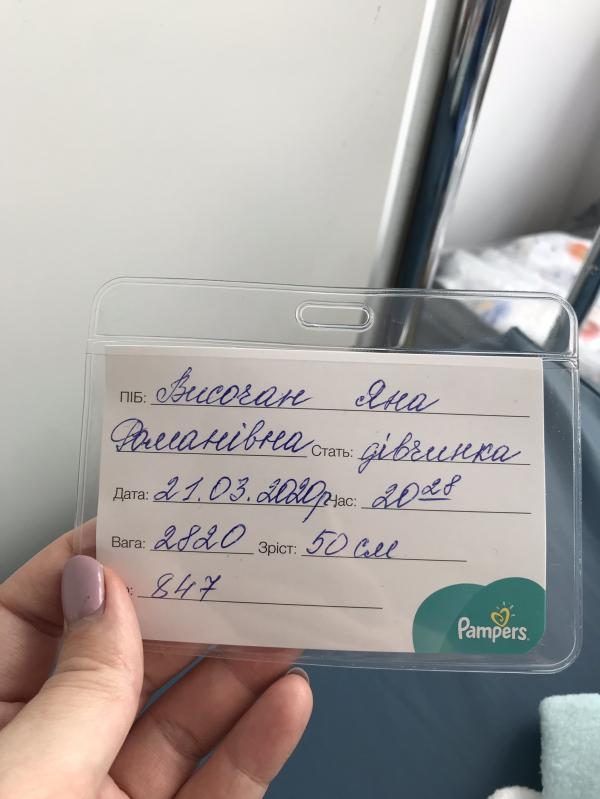 ПІБ: Височан Яна
Романівна Стать: дівчинка
Дата: 21.03.2020р Час: 20 28
Вага: 2820 Зріст: 50 см
847
Pampers